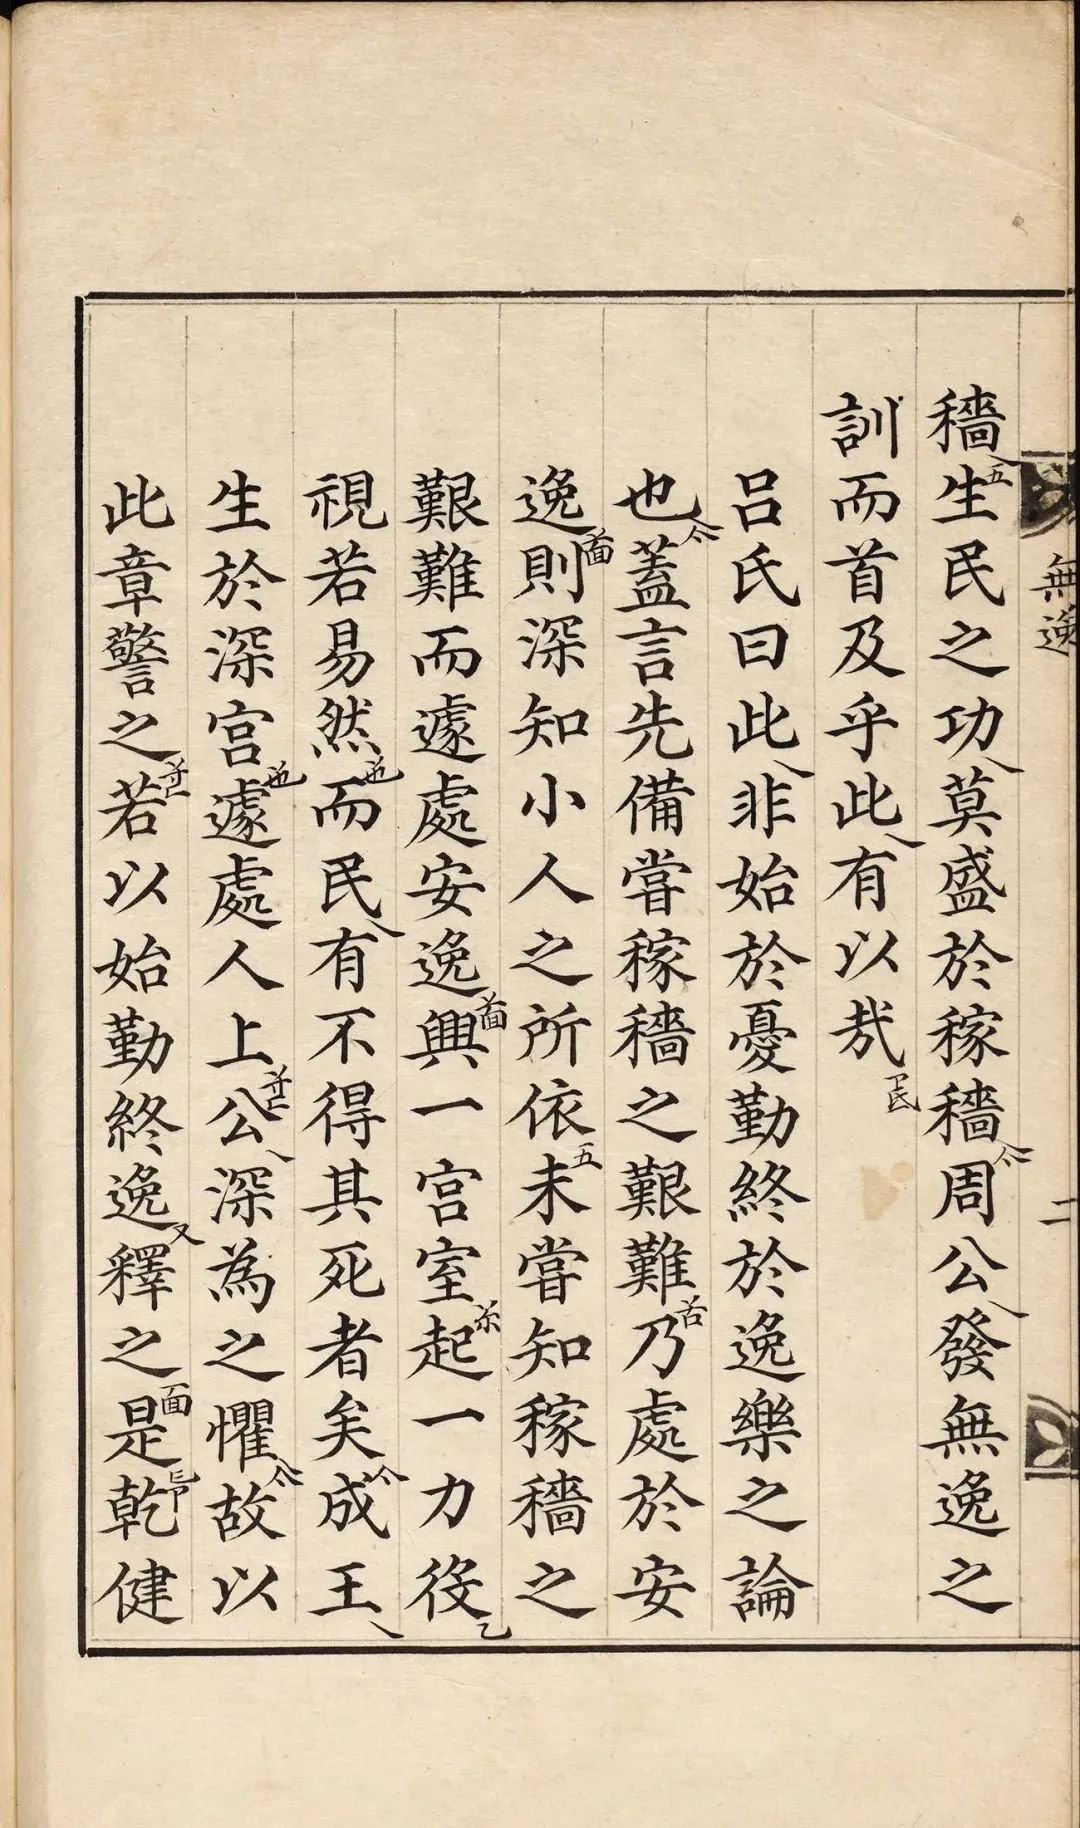 無逸
二
穡生民之功莫盛於稼穡周公發無逸之
訓而首及乎此有以㢤
呂氏曰此非始於憂勤終於逸樂之論
也蓋言先備嘗稼穡之艱難乃處於安
逸則深知小人之所依未嘗知稼穡之
艱難而遽處安逸興一宮室起一力役
視若易然而民有不得其死者矣成王
生於深宮遽處人上公深為之懼故以
此章警之若以始勤終逸釋之是乾健